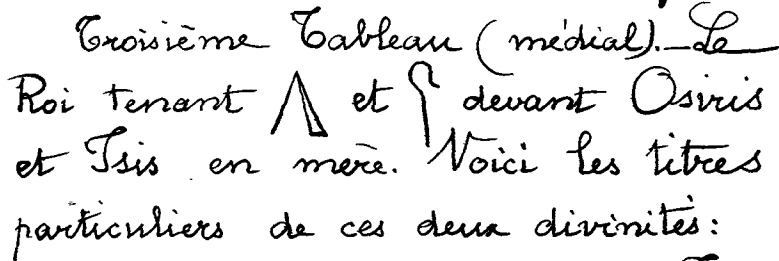 Troisième Tableau (médial). — Le
Roi tenant et devant Osiris
et Isis en mère. Voici les titres
particuliers de ces deux divinités: